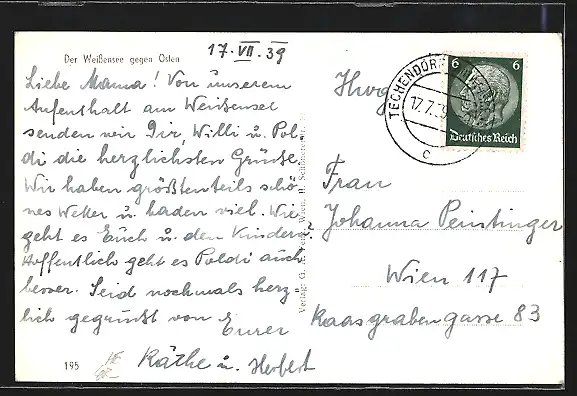 Der Weißensee gegen Osten
17. VII. 39
Liebe Mama! Von unserem
Aufenthalt am Weißensee
senden wir Dir, Willi u. Pol-
di die herzlichsten Grüße.
Wir haben größtenteils schö-
nes Wetter u. baden viel. Wie
geht es Euch u. den Kindern?
Hoffentlich geht es Poldi auch
besser. Seid nochmals herz-
lich gegrüßt von Eurer
Käthe u. Herbert
195
Wien,
TECHENDORF
17.7.39
c
6 6
Deutsches Reich
Frau
Johanna Peintinger
Wien 117
Kaasgrabengasse 83